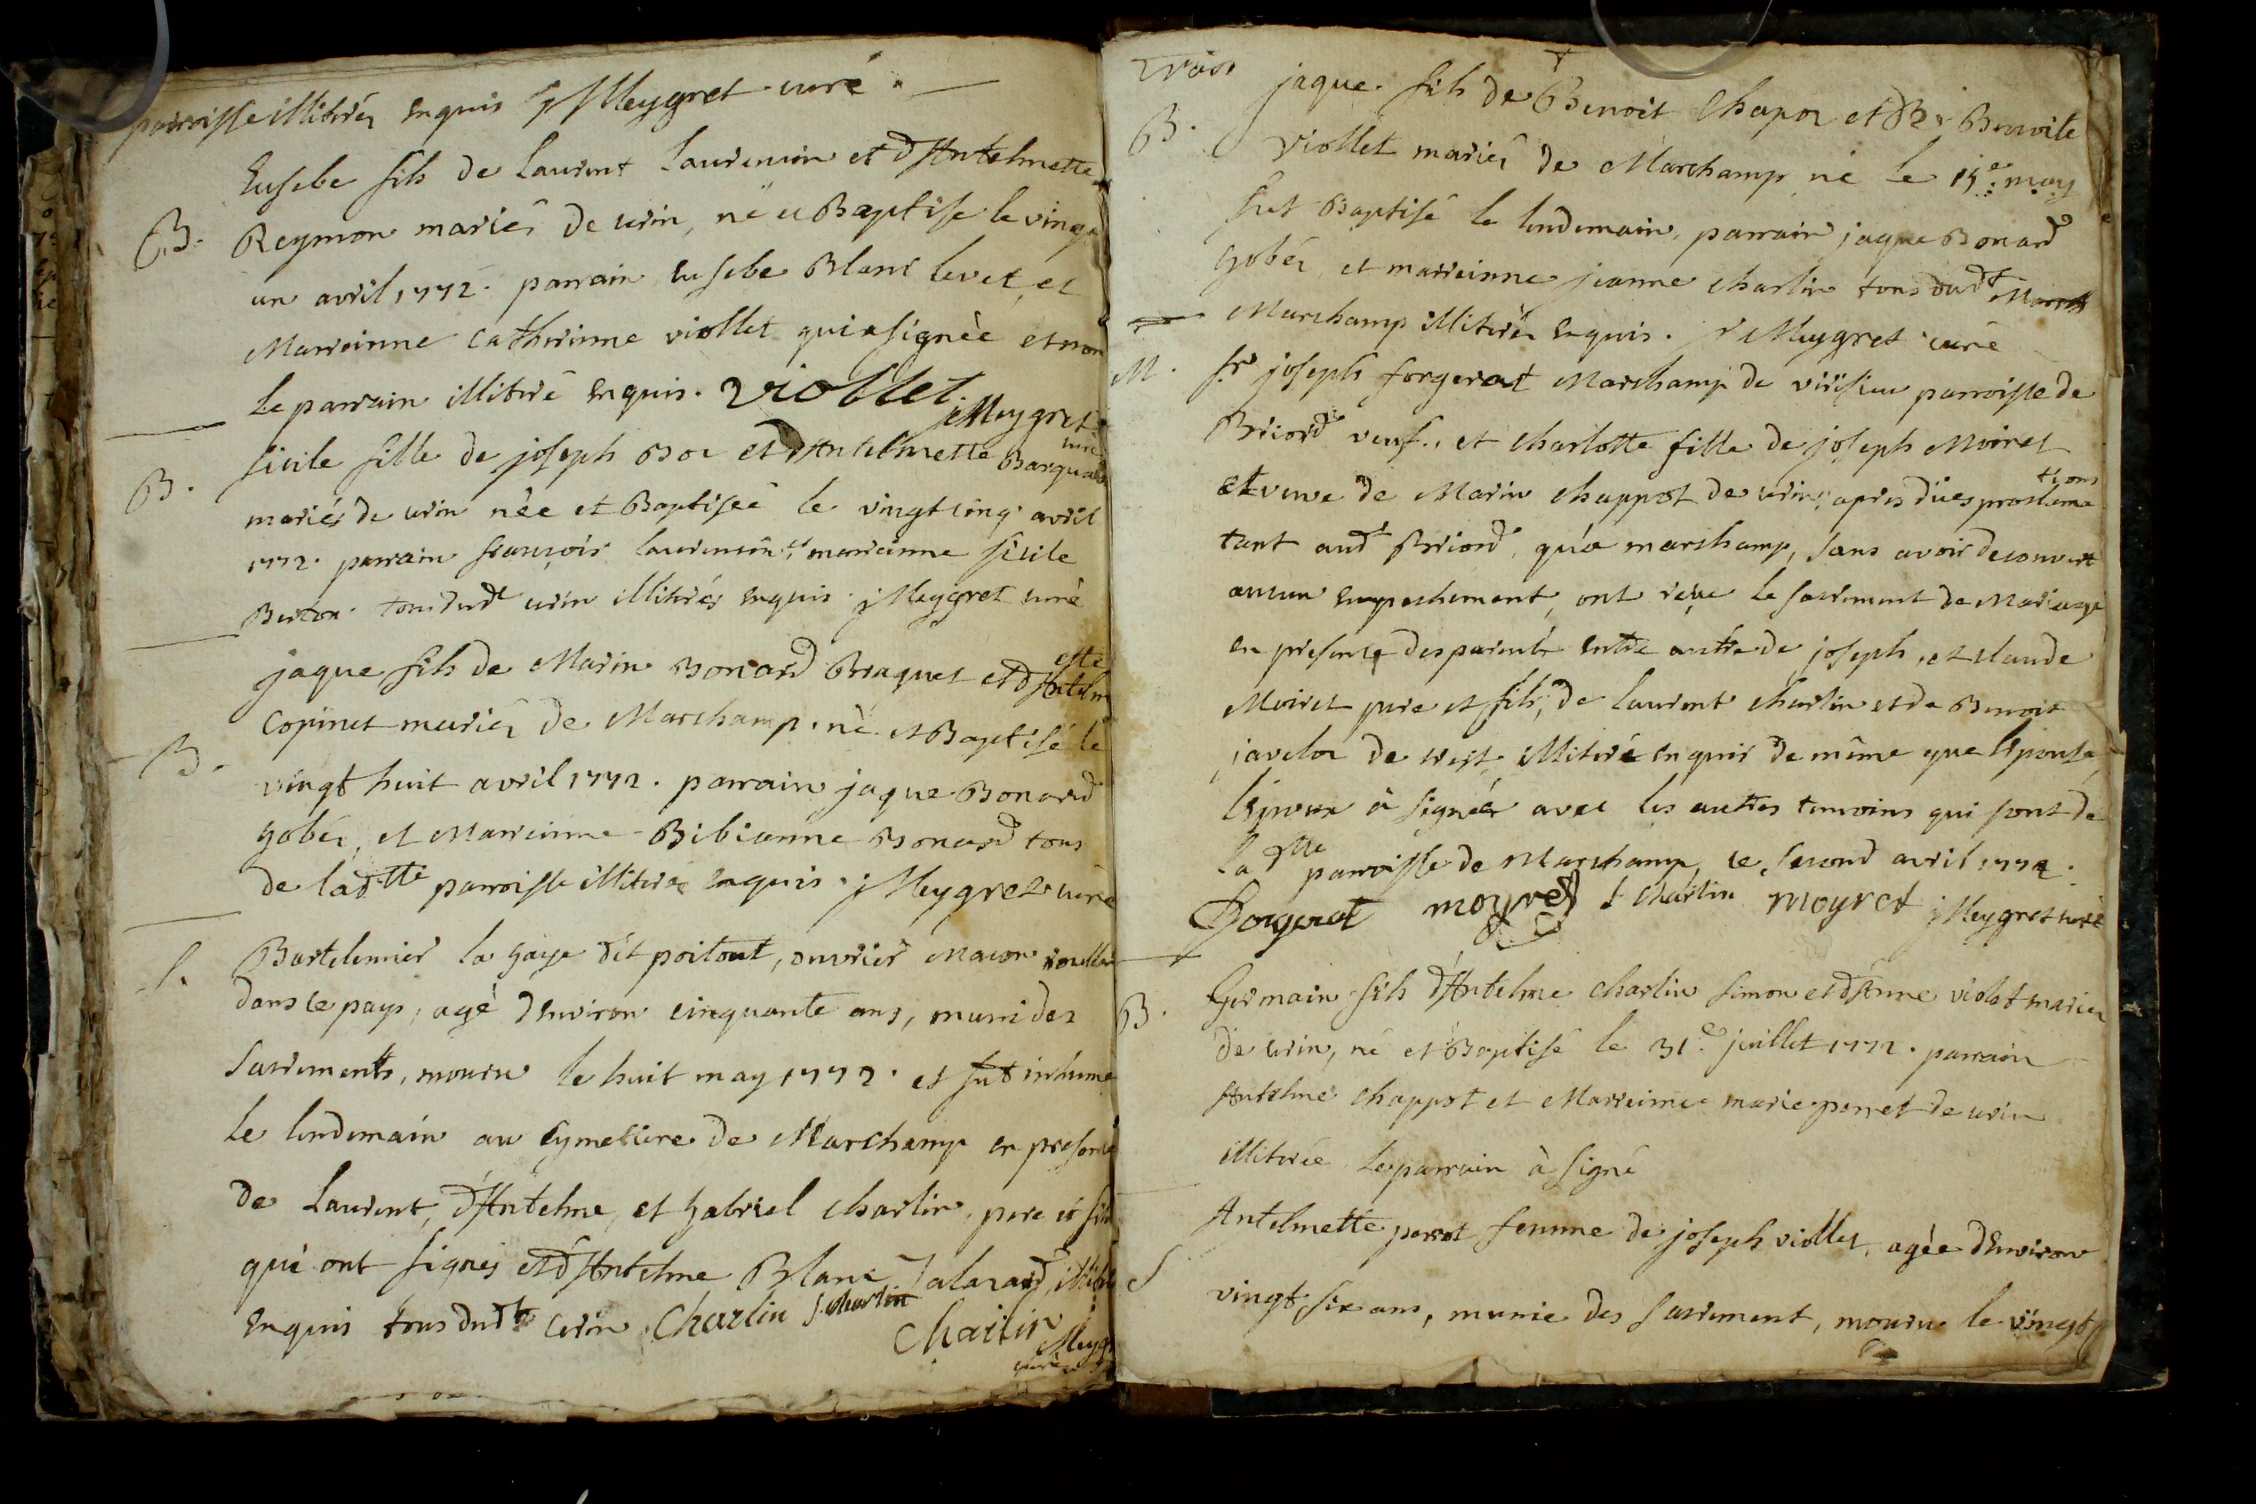 parroisse illitérés enquis j Meygret curé
Eusebe fils de Laurent Laurencin et d'Antelmette
B. Reymon mariés de cerin, né et Baptisé le vingt
un avril 1772. parrain Eusebe Blanc levet, et
Marreinne Catherinne viollet qui a signée et non
le parrain illitéré enquis. viollet j Meygret
curé
B. sicile fille de joseph Boz et d'Antelmette Barquat
mariés de cerin née et Baptiseé le vingt cinq avril
1772. parrain françois laurencin et marreinne sicile
Berton tous dudt cerin illitérés enquis j Meygret curé
jaque fils de Marin Bonard Braquet et d'Antelmette
B. Copinet mariés de Marchamp. né et Baptisé le
vingt huit avril 1772. parrain jaque Bonard
gobéz, et Marreinne Bibianne Bonard tous
de ladtte parroisse illitérés enquis. j Meygret curé
S. Bartelemier la gaye dit poitout, ouvrier macon
dans le pays, agé d'Environ cinquante ans, muni des
Sacrements, mouru le huit may 1772. et fut inhumé
le lendemain au Cymetiere de Marchamp en presence
de Laurent, d'Antelme, et gabriel charlin, pere et fils
qui ont signés et d'Antelme Blanc jalarard,
enquis tous dudt Cerin Charlin J. charlin
Charlin Meyg
curé
Trois
jaque fils de Benoit Chapoz et de Benoite
B. Viollet mariés de Marchamp né le 15e: may
fut Baptisé le lendemain, parrain jaque Bonard
gobéz et marreinne jeanne charlin tous dudt
Marchamp illitérés enquis. j Meygret curé
M. sr joseph forgerat Marchamp de virieu parroisse de
Briord veuf, et charlotte fille de joseph Moiret
et veuve de Marin chappot de cerin, apres dües proclamations
tant audt Briord, qu'a marchamp, sans avoir decouvert
aucun empechement, ont reçue le sacrement de Mariage
en presence des parents entre autre de joseph, et claude
Moiret pere et fils, de laurent charlin et de Benoit
javeloz de crept, illitéré enquis de même que l'Epouse,
l'Epoux à signéz avec les autres temoins qui sont de
la dtte parroisse de Marchamp, le second avril 1772.
Forgerat moyret L charlin moyret j Meygret curé
B. Germain fils d'Antelme Charlin simon et d'Anne violet mariés
de cerin, né et Baptisé le 31e juillet 1772. parrain
Antelme chappot et Marreinne marie perret de cerin
illitérée le parrain à signé
Antelmette perrot femme de joseph viollet, agée d'Environ
S vingt six ans, munie des sacrement, mouru le vingt